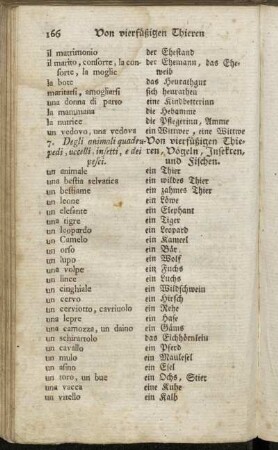 166 Von vierfüßigen Thieren
il matrimonio der Ehestand
il marito, conforte, la con- der Ehemann, das Ehe-
sorte, la moglie weib
la bote das Heurathgut
maritarsi, amogliarsi sich heurathen
una donna di parto eine Kindbetterinn
la mammana die Hebamme
la nutrice die Pflegerinn, Amme
un vedovo, una vedova ein Wittwer, eine Wittwe
7. Degli animali quadru- Von vierfüßigen Thie-
pedi, uccelli, insetti, e dei ren, Vögeln, Insekten,
pesci. und Fischen.
un animale ein Thier
una bestia selvatica ein wildes Thier
un bestiame ein zahmes Thier
un leone ein Löwe
un elefante ein Elephant
una tigre ein Tiger
un leopardo ein Leopard
un Camelo ein Kameel
un orso ein Bär
un lupo ein Wolf
una volpe ein Fuchs
un lince ein Luchs
un cinghiale ein Wildschwein
un cervo ein Hirsch
un cerviotto, cavriuolo ein Rehe
una lepre ein Hase
una camozza, un daino ein Gäms
un schirattolo das Eichhörnlein
un cavallo ein Pferd
un mulo ein Maulesel
un asino ein Esel
un toro, un bue ein Ochs, Stier
una vacca eine Kuhe
un vitello ein Kalb